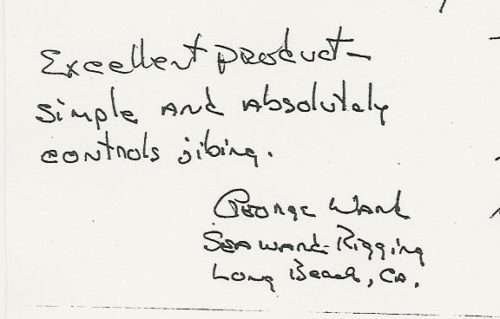 Excellent product–
simple and absolutely
controls jibing.
George Ward
Seaward Rigging
Long Beach, CA.